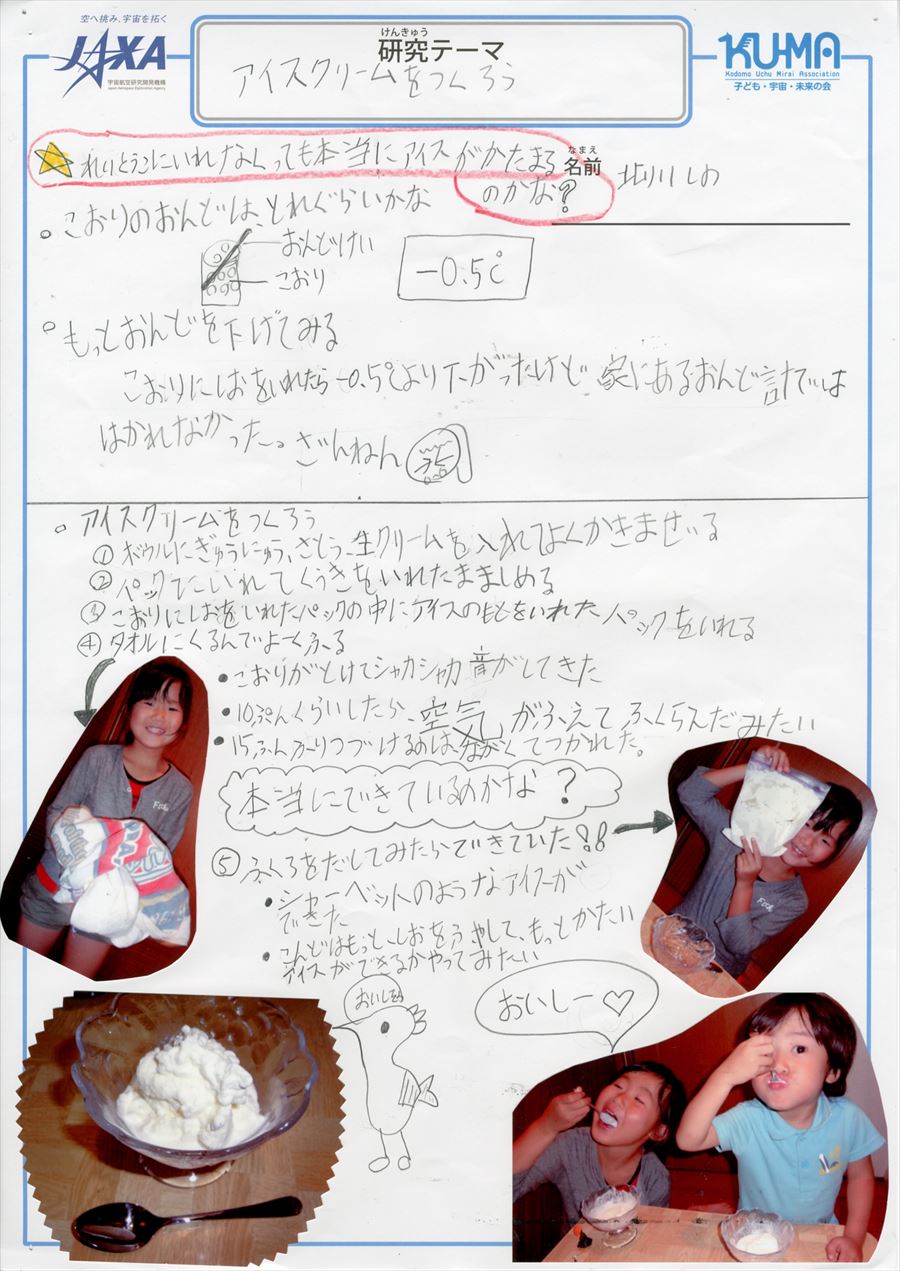 空へ挑み、宇宙を拓く
JAXA
宇宙航空研究開発機構
Japan Aerospace Exploration Agency
けんきゅう
研究テーマ
アイスクリームをつくろう
KU-MA
Kodomo Uchu Mirai Association
子ども・宇宙・未来の会
れいとうこにいれなくっても本当にアイスがかたまる
のかな?
なまえ
名前
北川しの
こおりのおんどは、どれぐらいかな
おんどけい
こおり
-0.5℃
もっとおんどを下げてみる
こおりにしおをいれたら-0.5℃より下がったけど 家にあるおんど計では
はかれなかった。ざんねん
アイスクリームをつくろう
① ボウルにぎゅうにゅう、さとう、生クリームを入れてよくかきまぜる
② パックにいれてくうきをいれたまましめる
③ こおりにしおをいれたパックの中にアイスのもとをいれたパックをいれる
④ タオルにくるんでよーくふる
・こおりがとけてシャカシャカ音がしてきた
・10ぷんくらいしたら、空気がふえてふくらんだみたい
・15ふんふりつづけるのは、ながくてつかれた。
本当にできているのかな?
⑤ ふくろをだしてみたらできていた!!
・シャーベットのようなアイスが
できた
・こんどはもっと、しおをふやして、もっとかたい
アイスができるかやってみたい
おいしそう
おいしー♡